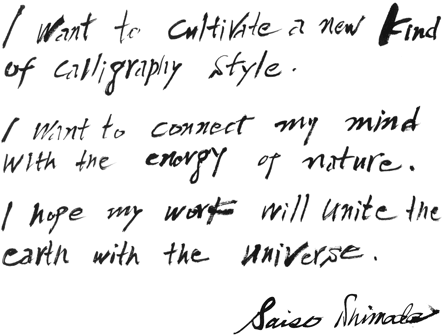 I want to cultivate a new kind
of calligraphy style.
I want to connect my mind
with the energy of nature.
I hope my work will unite the
earth with the universe.
Saiso Shimada